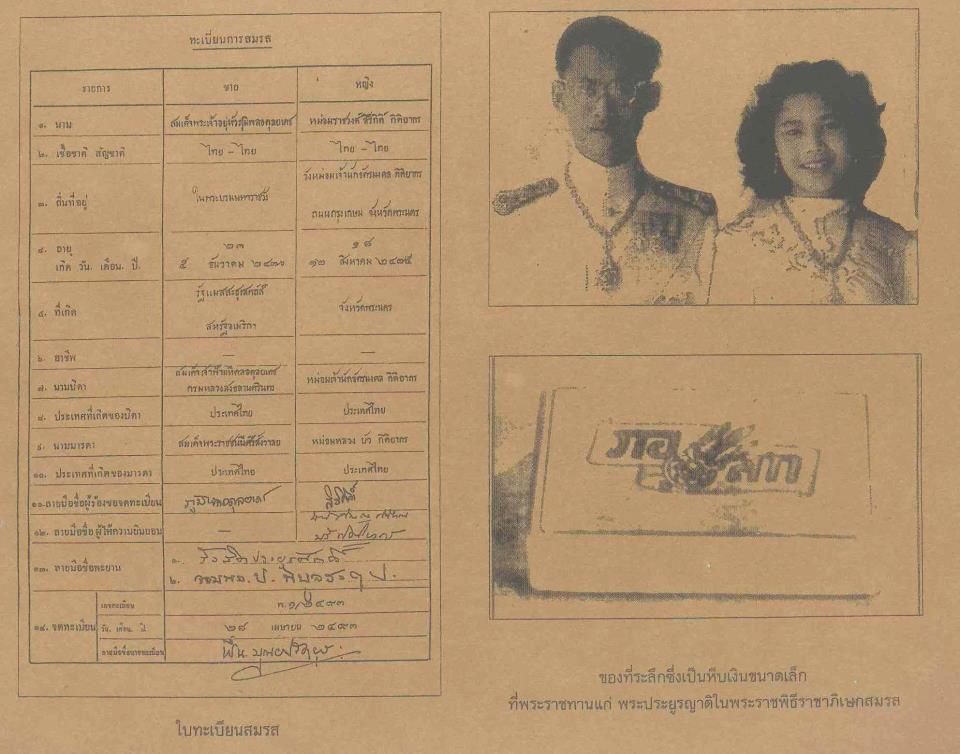 ทะเบียนการสมรส
รายการ ชาย หญิง
๑. นาม สมเด็จพระเจ้าอยู่หัวภูมิพลอดุลยเดช หม่อมราชวงศ์ สิริกิติ์ กิติยากร
๒. เชื้อชาติ สัญชาติ ไทย - ไทย ไทย - ไทย
วังหม่อมเจ้านักขัตรมงคล กิติยากร
๓. ถิ่นที่อยู่ ในพระบรมมหาราชวัง
ถนนกรุงเกษม จังหวัดพระนคร
๔. อายุ ๒๓ ๑๘
เกิด วัน. เดือน. ปี. ๕ ธันวาคม ๒๔๗๐ ๑๒ สิงหาคม ๒๔๗๕
รัฐแมสสะชูเสตส์
๕. ที่เกิด จังหวัดพระนคร
สหรัฐอเมริกา
๖. อาชีพ — —
๗. นามบิดา สมเด็จเจ้าฟ้ามหิดลอดุลยเดช หม่อมเจ้านักขัตรมงคล กิติยากร
กรมหลวงสงขลานครินทร์
๘. ประเทศที่เกิดของบิดา ประเทศไทย ประเทศไทย
๙. นามมารดา สมเด็จพระราชชนนีศรีสังวาลย์ หม่อมหลวง บัว กิติยากร
๑๐. ประเทศที่เกิดของมารดา ประเทศไทย ประเทศไทย
๑๑. ลายมือชื่อผู้ร้องขอจดทะเบียน ภูมิพลอดุลยเดช สิริกิติ์
๑๒. ลายมือชื่อ ผู้ให้ความยินยอม —
๑๓. ลายมือชื่อพะยาน ๑. รังสิตประยูรศักดิ์
๒. จอมพล.ป. พิบูลสงคราม
เลขทะเบียน
๑๔. จดทะเบียน วัน. เดือน. ปี ๒๘ เมษายน ๒๔๙๓
ลายมือชื่อนายทะเบียน ฟื้น บุณยปรัตยุธ
ใบทะเบียนสมรส
ภอ สก
ของที่ระลึกซึ่งเป็นหีบเงินขนาดเล็ก
ที่พระราชทานแก่ พระประยูรญาติในพระราชพิธีราชาภิเษกสมรส